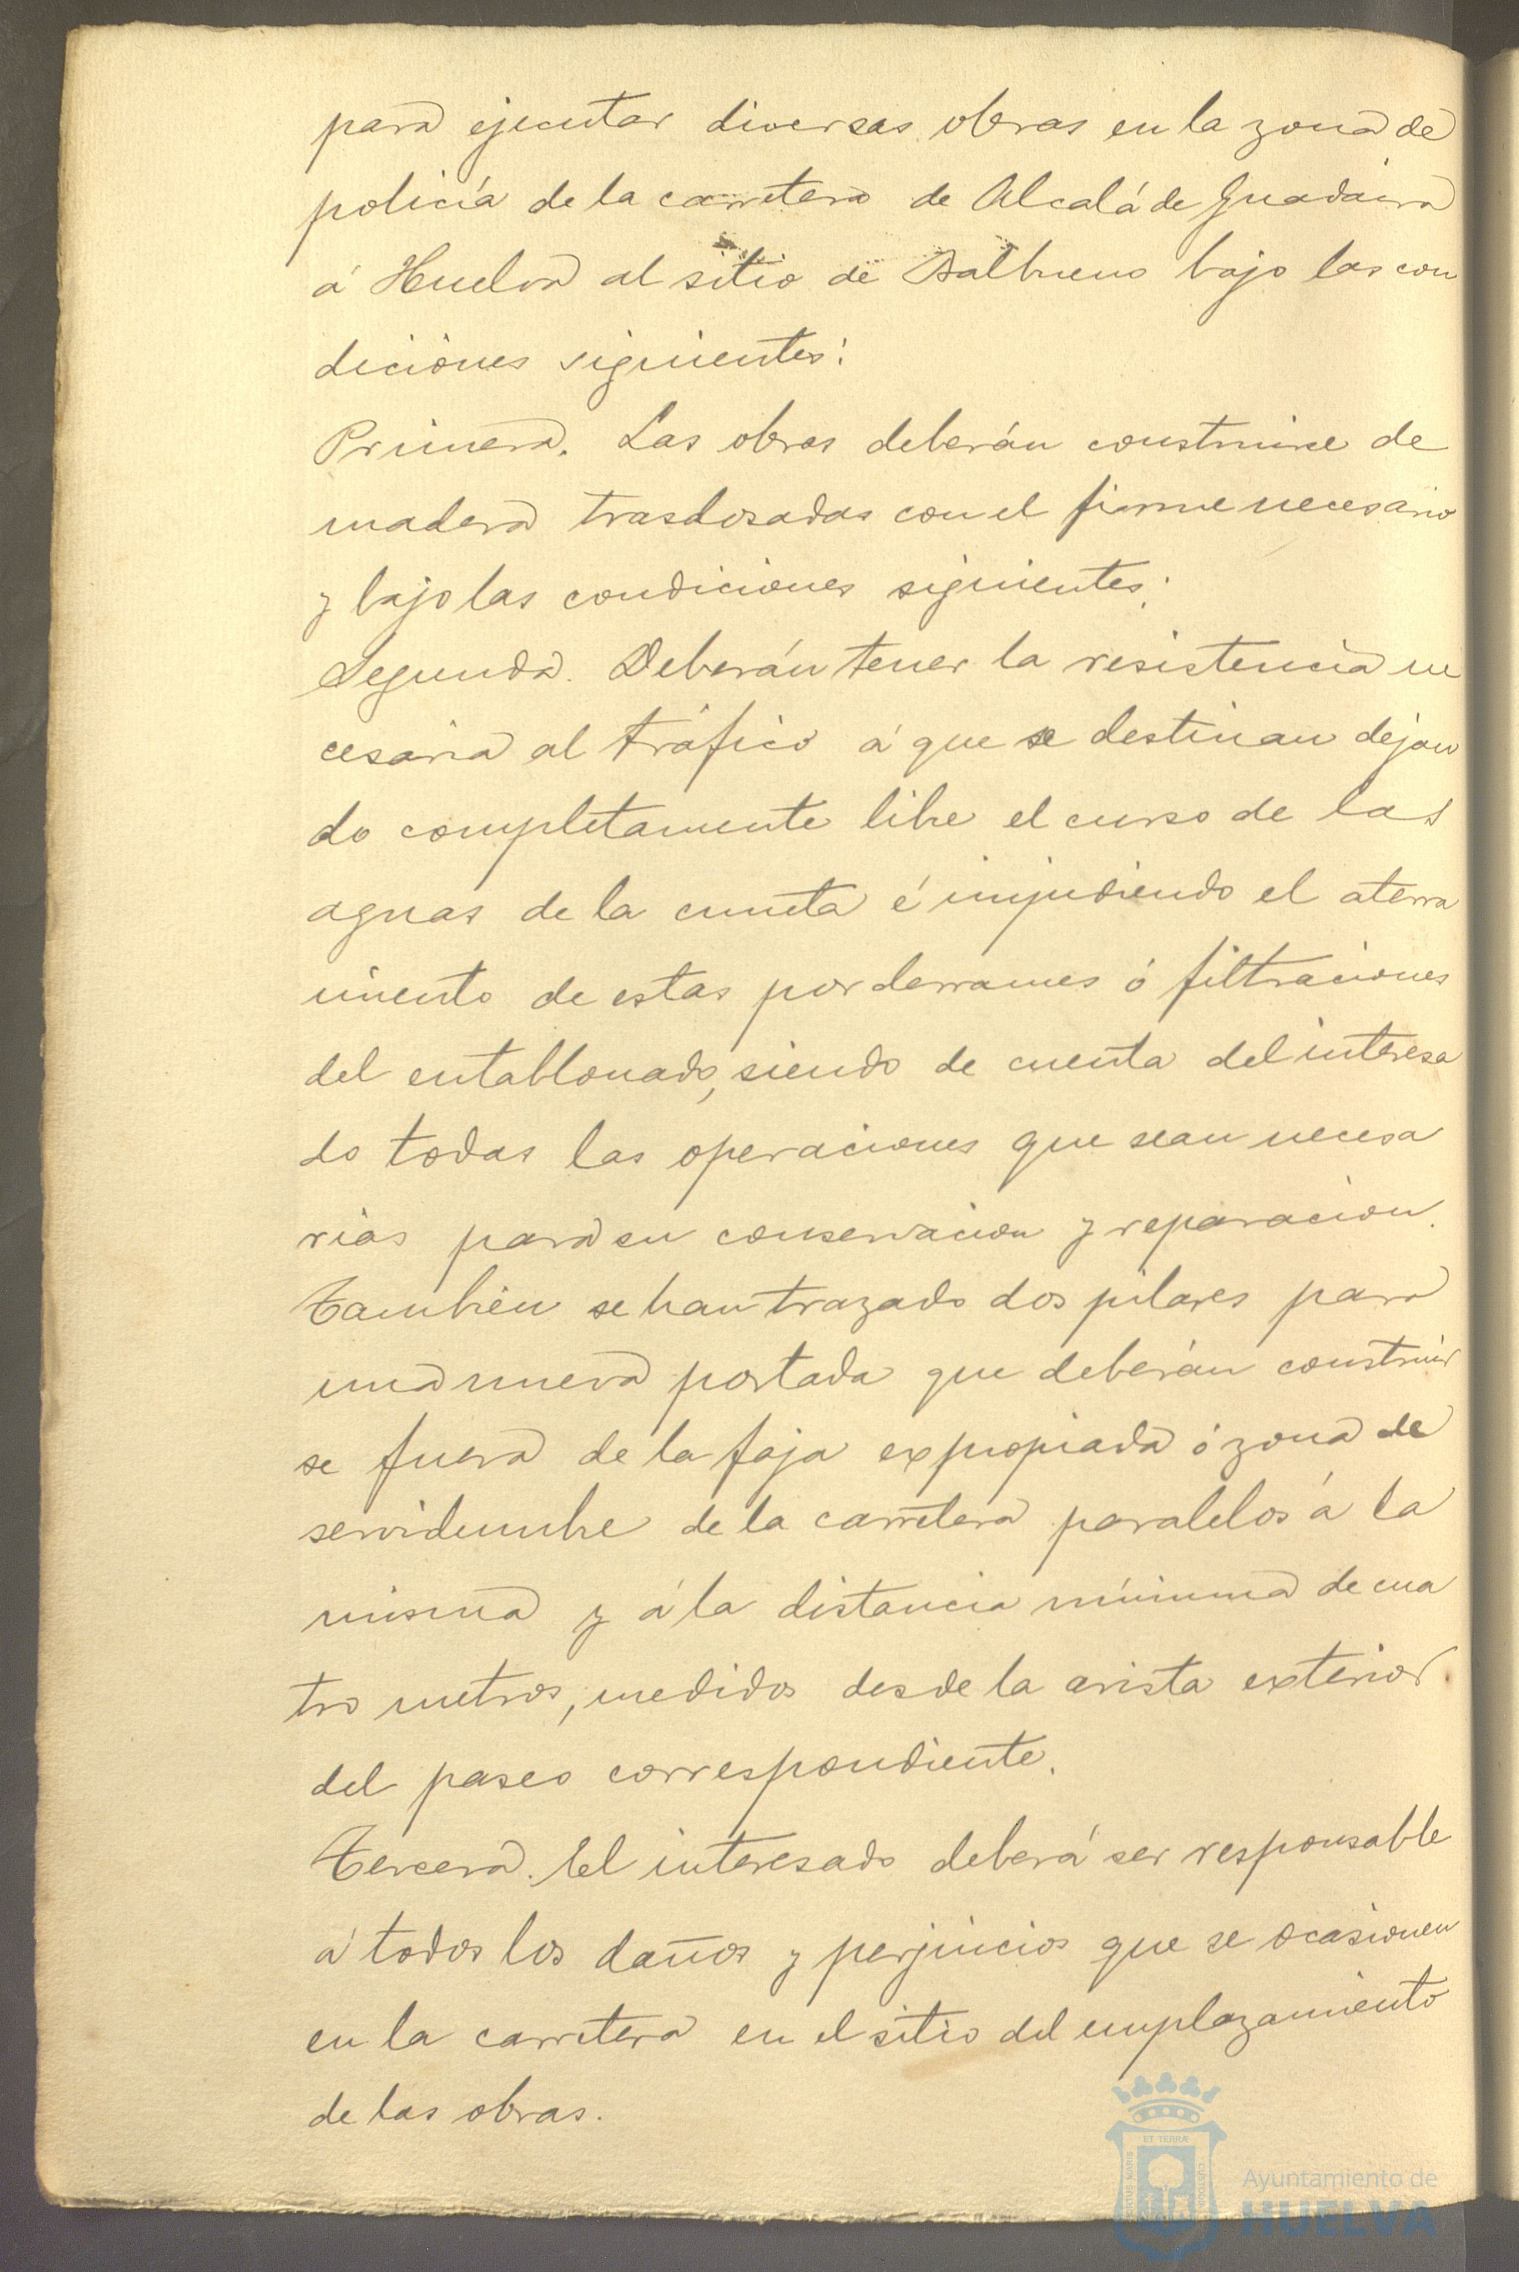 para ejecutar diversas obras en la zona de
policía de la carretera de Alcalá de Guadaira
á Huelva al sitio de Balbueno bajo las con
diciones siguientes:
Primera. Las obras deberán construirse de
madera trasdosadas con el firme necesario
y bajo las condiciones siguientes:
Segunda. Deberán tener la resistencia ne
cesaria al tráfico á que se destinan dejan
do completamente libre el curso de las
aguas de la cuneta é impidiendo el aterra
miento de estas por derrames ó filtraciones
del entablonado, siendo de cuenta del interesa
do todas las operaciones que sean necesa
rias para su conservacion y reparacion.
Tambien se han trazado dos pilares para
una nueva portada que deberán construir
se fuera de la faja expropiada ó zona de
servidumbre de la carretera paralelos á la
misma y á la distancia mínima de cua
tro metros, medidos desde la arista exterior
del paseo correspondiente.
Tercera. El interesado deberá ser responsable
á todos los daños y perjuicios que se ocasionen
en la carretera en el sitio del emplazamiento
de las obras.
ET TERRÆ
PORTUS MARIS
CUSTODIA
Ayuntamiento de
HUELVA